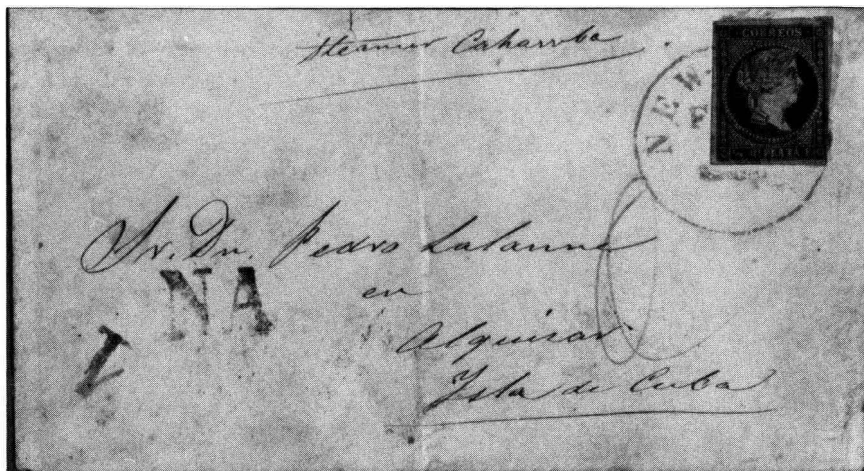 Steamer Cahawba
CORREOS
NEW
Sr. Dn. Pedro Lalanne
NA
en
1
Alquisar
Isla de Cuba